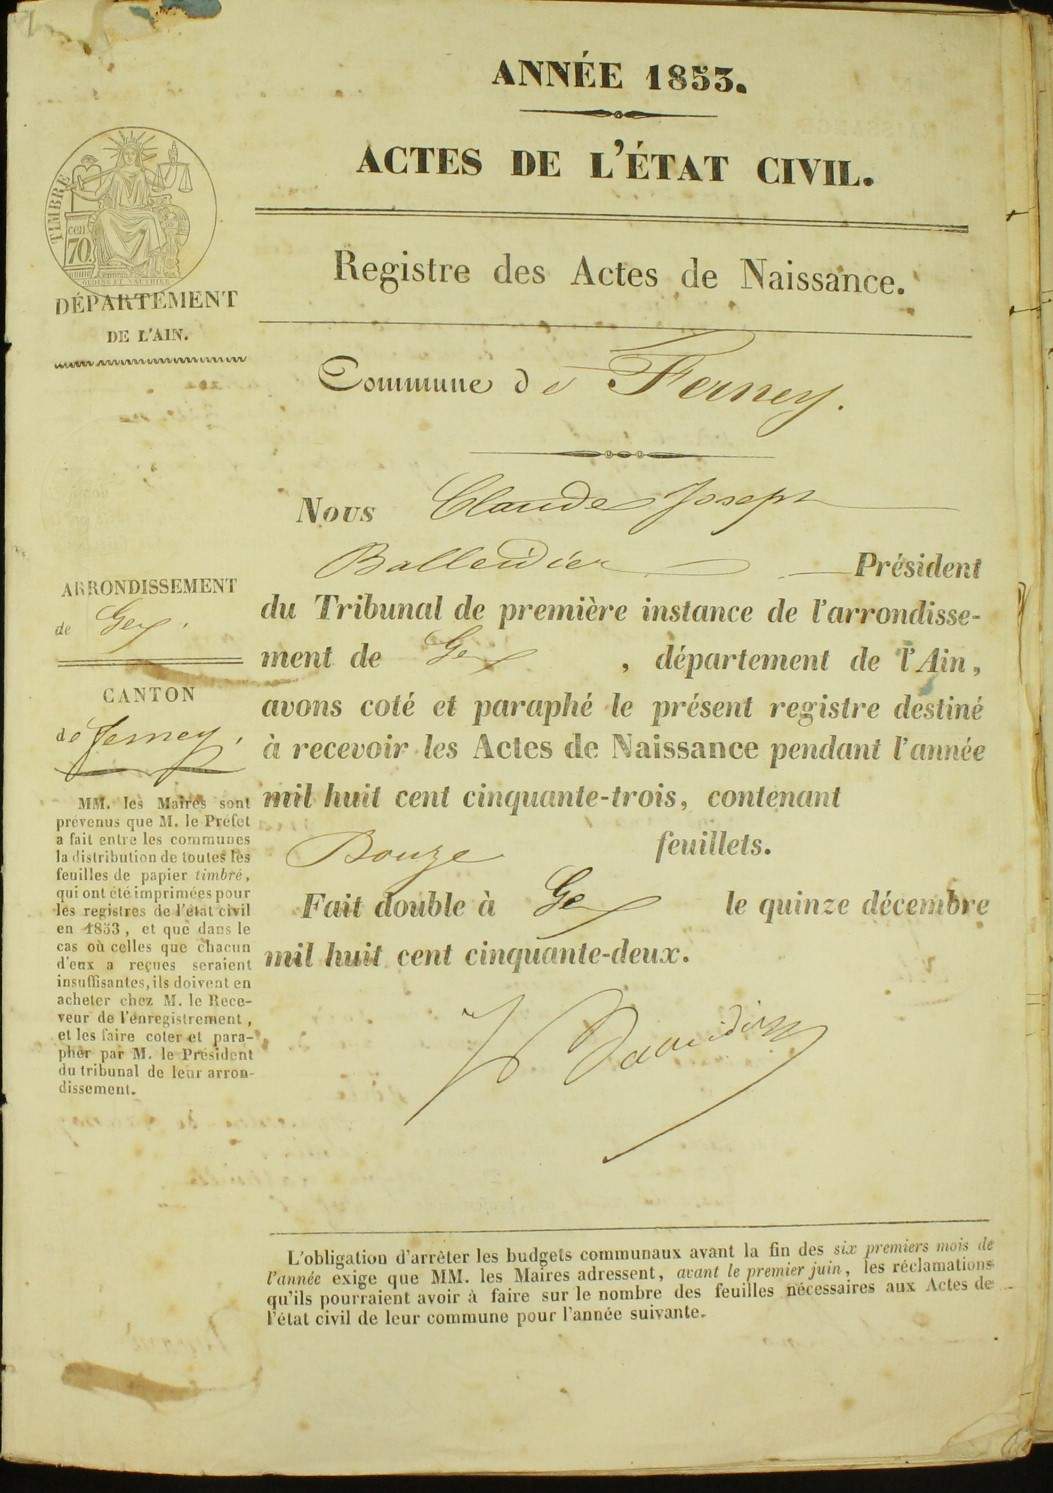 ANNÉE 1853.
ACTES DE L'ÉTAT CIVIL.
Registre des Actes de Naissance.
Commune de Ferney.
TIMBRE
70 cen
DÉPARTEMENT
DE L'AIN.
ARRONDISSEMENT
de Gex.
CANTON
de Ferney.
MM. les Maires sont
prévenus que M. le Préfet
a fait entre les communes
la distribution de toutes les
feuilles de papier timbré,
qui ont été imprimées pour
les registres de l'état civil
en 1853, et que dans le
cas où celles que chacun
d'eux a reçues seraient
insuffisantes, ils doivent en
acheter chez M. le Rece-
veur de l'enregistrement,
et les faire coter et para-
pher par M. le Président
du tribunal de leur arron-
dissement.
Nous Claude Joseph
Balleidier Président
du Tribunal de première instance de l'arrondisse-
ment de Gex, département de l'Ain,
avons coté et paraphé le présent registre destiné
à recevoir les Actes de Naissance pendant l'année
mil huit cent cinquante-trois, contenant
feuillets.
Fait double à Gex le quinze décembre
mil huit cent cinquante-deux.
L'obligation d'arrêter les budgets communaux avant la fin des six premiers mois de
l'année exige que MM. les Maires adressent, avant le premier juin, les réclamations
qu'ils pourraient avoir à faire sur le nombre des feuilles nécessaires aux Actes de
l'état civil de leur commune pour l'année suivante.